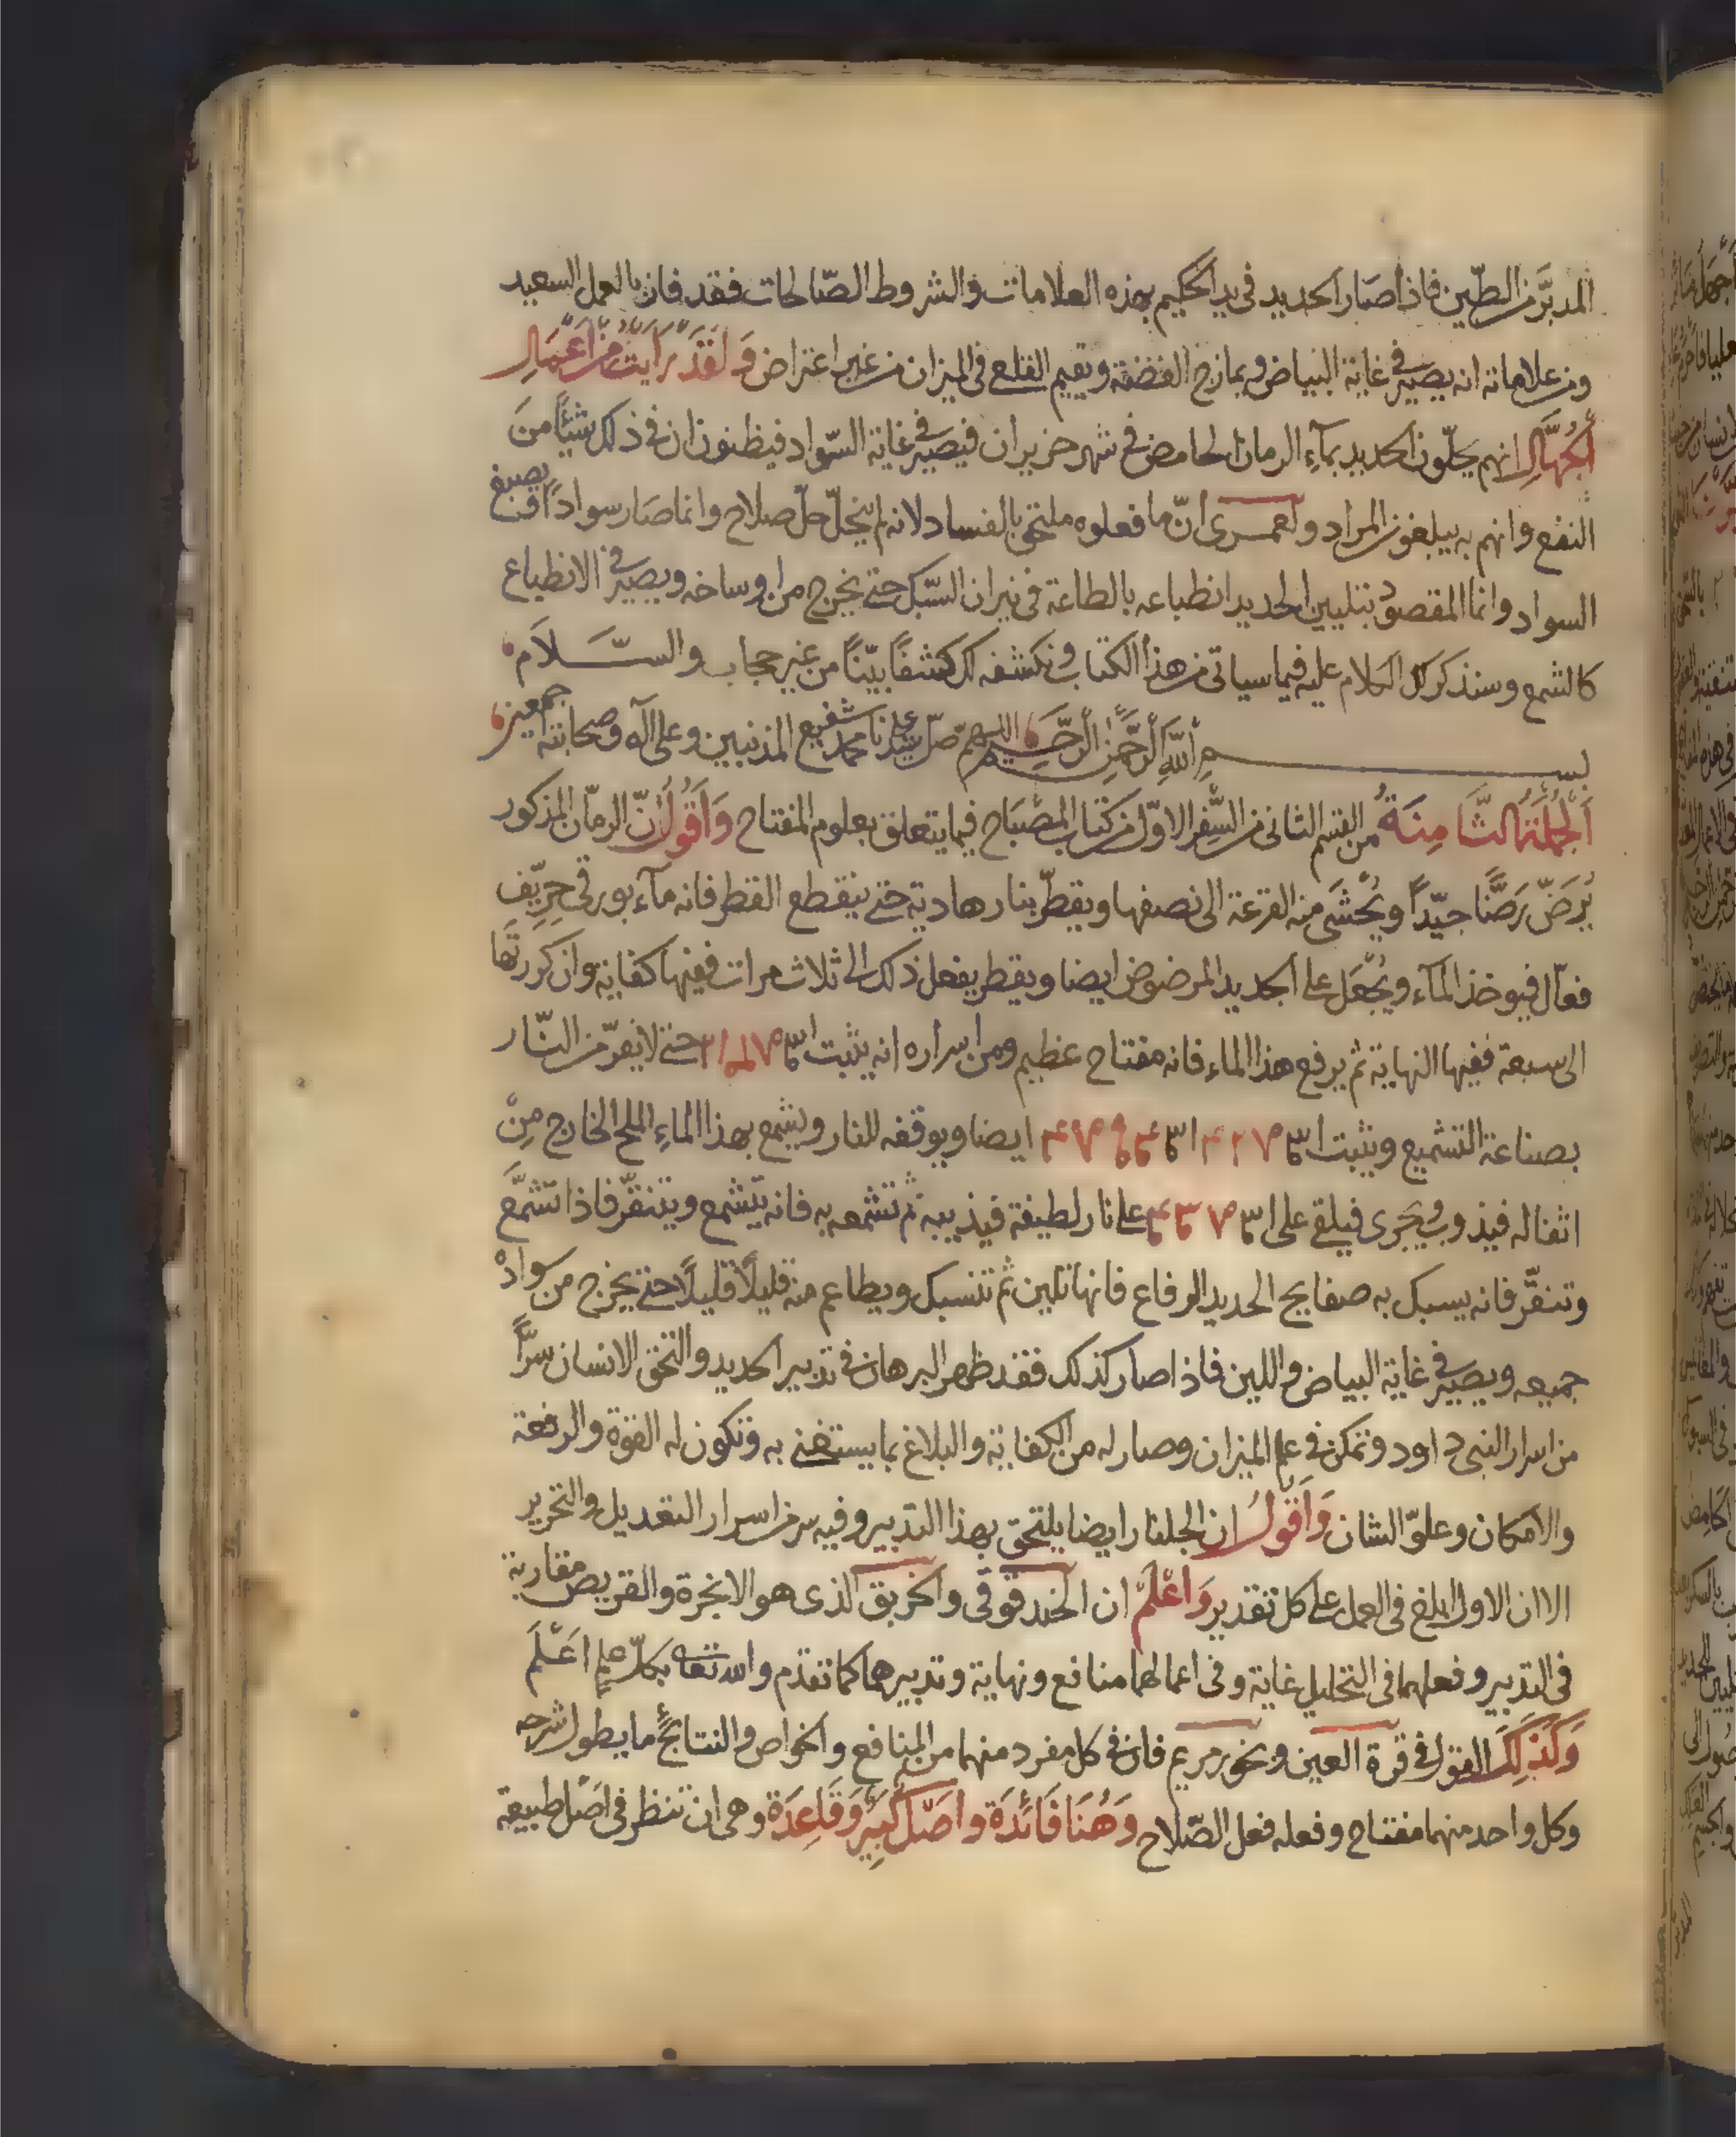 المدبَّر من الطين فاذا صار الحديد فى يد الحكيم بهذه العلامات والشروط الصّالحات فقد فاز بالعمل السعيد
ومن علاماته انه يصير فى غاية البياض ويمازج الفضة ويقيم القلع فى الميزان من غير اعتراض وَلَقَدْ رَأيت من اَعْمَالِ
الجُهَّالِ انهم يحلّون الحديد بمآءِ الرمان الحامض فى شهر حزيران فيصير فى غاية السّواد فيظنون ان فى ذلك شيئًا منَ
النفع وانهم به يبلغون المراد ولعمرى انّ ما فعلوه ملتحق بالفساد لانه لم ينحلّ حلّ صلاح وانما صَار سوادًا يصبغ
السواد وانما المقصود بتليين الحديد انطباعه بالطاعة فى نيران السّبك حتى يخرج من اوساخه ويصير فى الانطباع
كالشمع وسنذكر لك الكلام عليه فيما سياتى من هذا الكتاب ونكشفه لك كشفًا بيّنًا من غير حجاب والسَّلَام
بسم اللّه الرَّحمٰن الرَّحيم اللهم صلّ على سيدنا محمد شفيع المذنبين وعلى اله وصحابته اجمعين
اَلجُملَةُ الثَّامِنَةُ من القسم الثانى من السِّفر الاوّل من كتاب المصْبَاح فيما يتعلق بعلوم المفتاح وَاَقُولُ انّ الرمّان المذكور
يُرَضّ رَضًّا جيّدًا ويُحْشَى منه القرعة الى نصفها ويقطّر بنار هادية حتى ينقطع القطر فانه مآء بورقى حِرِّيف
فعّال فيوخذ المآء ويُجْعَل على الحديد المرضوض ايضا ويقطر يفعل ذلك الى ثلاث مرات ففيها كفاية وان كررتها
الى سبعة ففيها النهاية ثم يرفع هذا الماء فانه مفتاح عظيم ومن اسراره انه يثبت حتى لا يفرّ من النّار
بصناعة التشميع ويثبت ايضا ويوقفه للنار ويشمع بهذا الماءِ الملح الخارج مِنْ
اثفاله فيذوب ويَجرى فيلقى على على نار لطيفة فيذيبه ثم تشمعه به فانه يتشمع ويتنقّر فاذا تشمَّعَ
وتنقّر فانه يسبك به صفايح الحديد الرفاع فانها تلين ثم تنسبك ويطاعم منه قليلًا قليلًا حتى يخرج من سوادهْ
جميعه ويصير فى غاية البياض واللين فاذا صار كذلك فقد ظهر البرهان فى تدبير الحديد والتحق الانسان سرًّا
من اسرار النبى داود وتمكن فى علم الميزان وصار له من الكفاية والبلاغ بما يستغنى به وتكون له القوة والرفعة
والامكان وعلوّ الشان وَاَقُولُ ان الجلنار ايضا يلتحق بهذا التدبير وفيه سر من اسرار التعديل والتحرير
الا ان الاول ابلغ فى العمل على كل تقدير وَاعْلَمْ ان الحندقوقى والخربق الذى هو الانجرة والقريص مقاربة
فى التدبير وفعلهما فى التحليل غاية وفى اعمالهما منافع ونهاية وتدبيرهما كما تقدم والله تعالى بكلّ علم اَعْلَم
وَكَذلِكَ القول فى قرة العين وبخور مريم فان فى كل مفرد منهما من المنافع والخواص والنتائج ما يطول شرحه
وكل واحد منهما مفتاح وفعله فعل الصّلاح وَهُنَا فَائدَة واصْل كَبِير وَقَاعِدَة وهى ان تنظر فى اصْل طبيعة